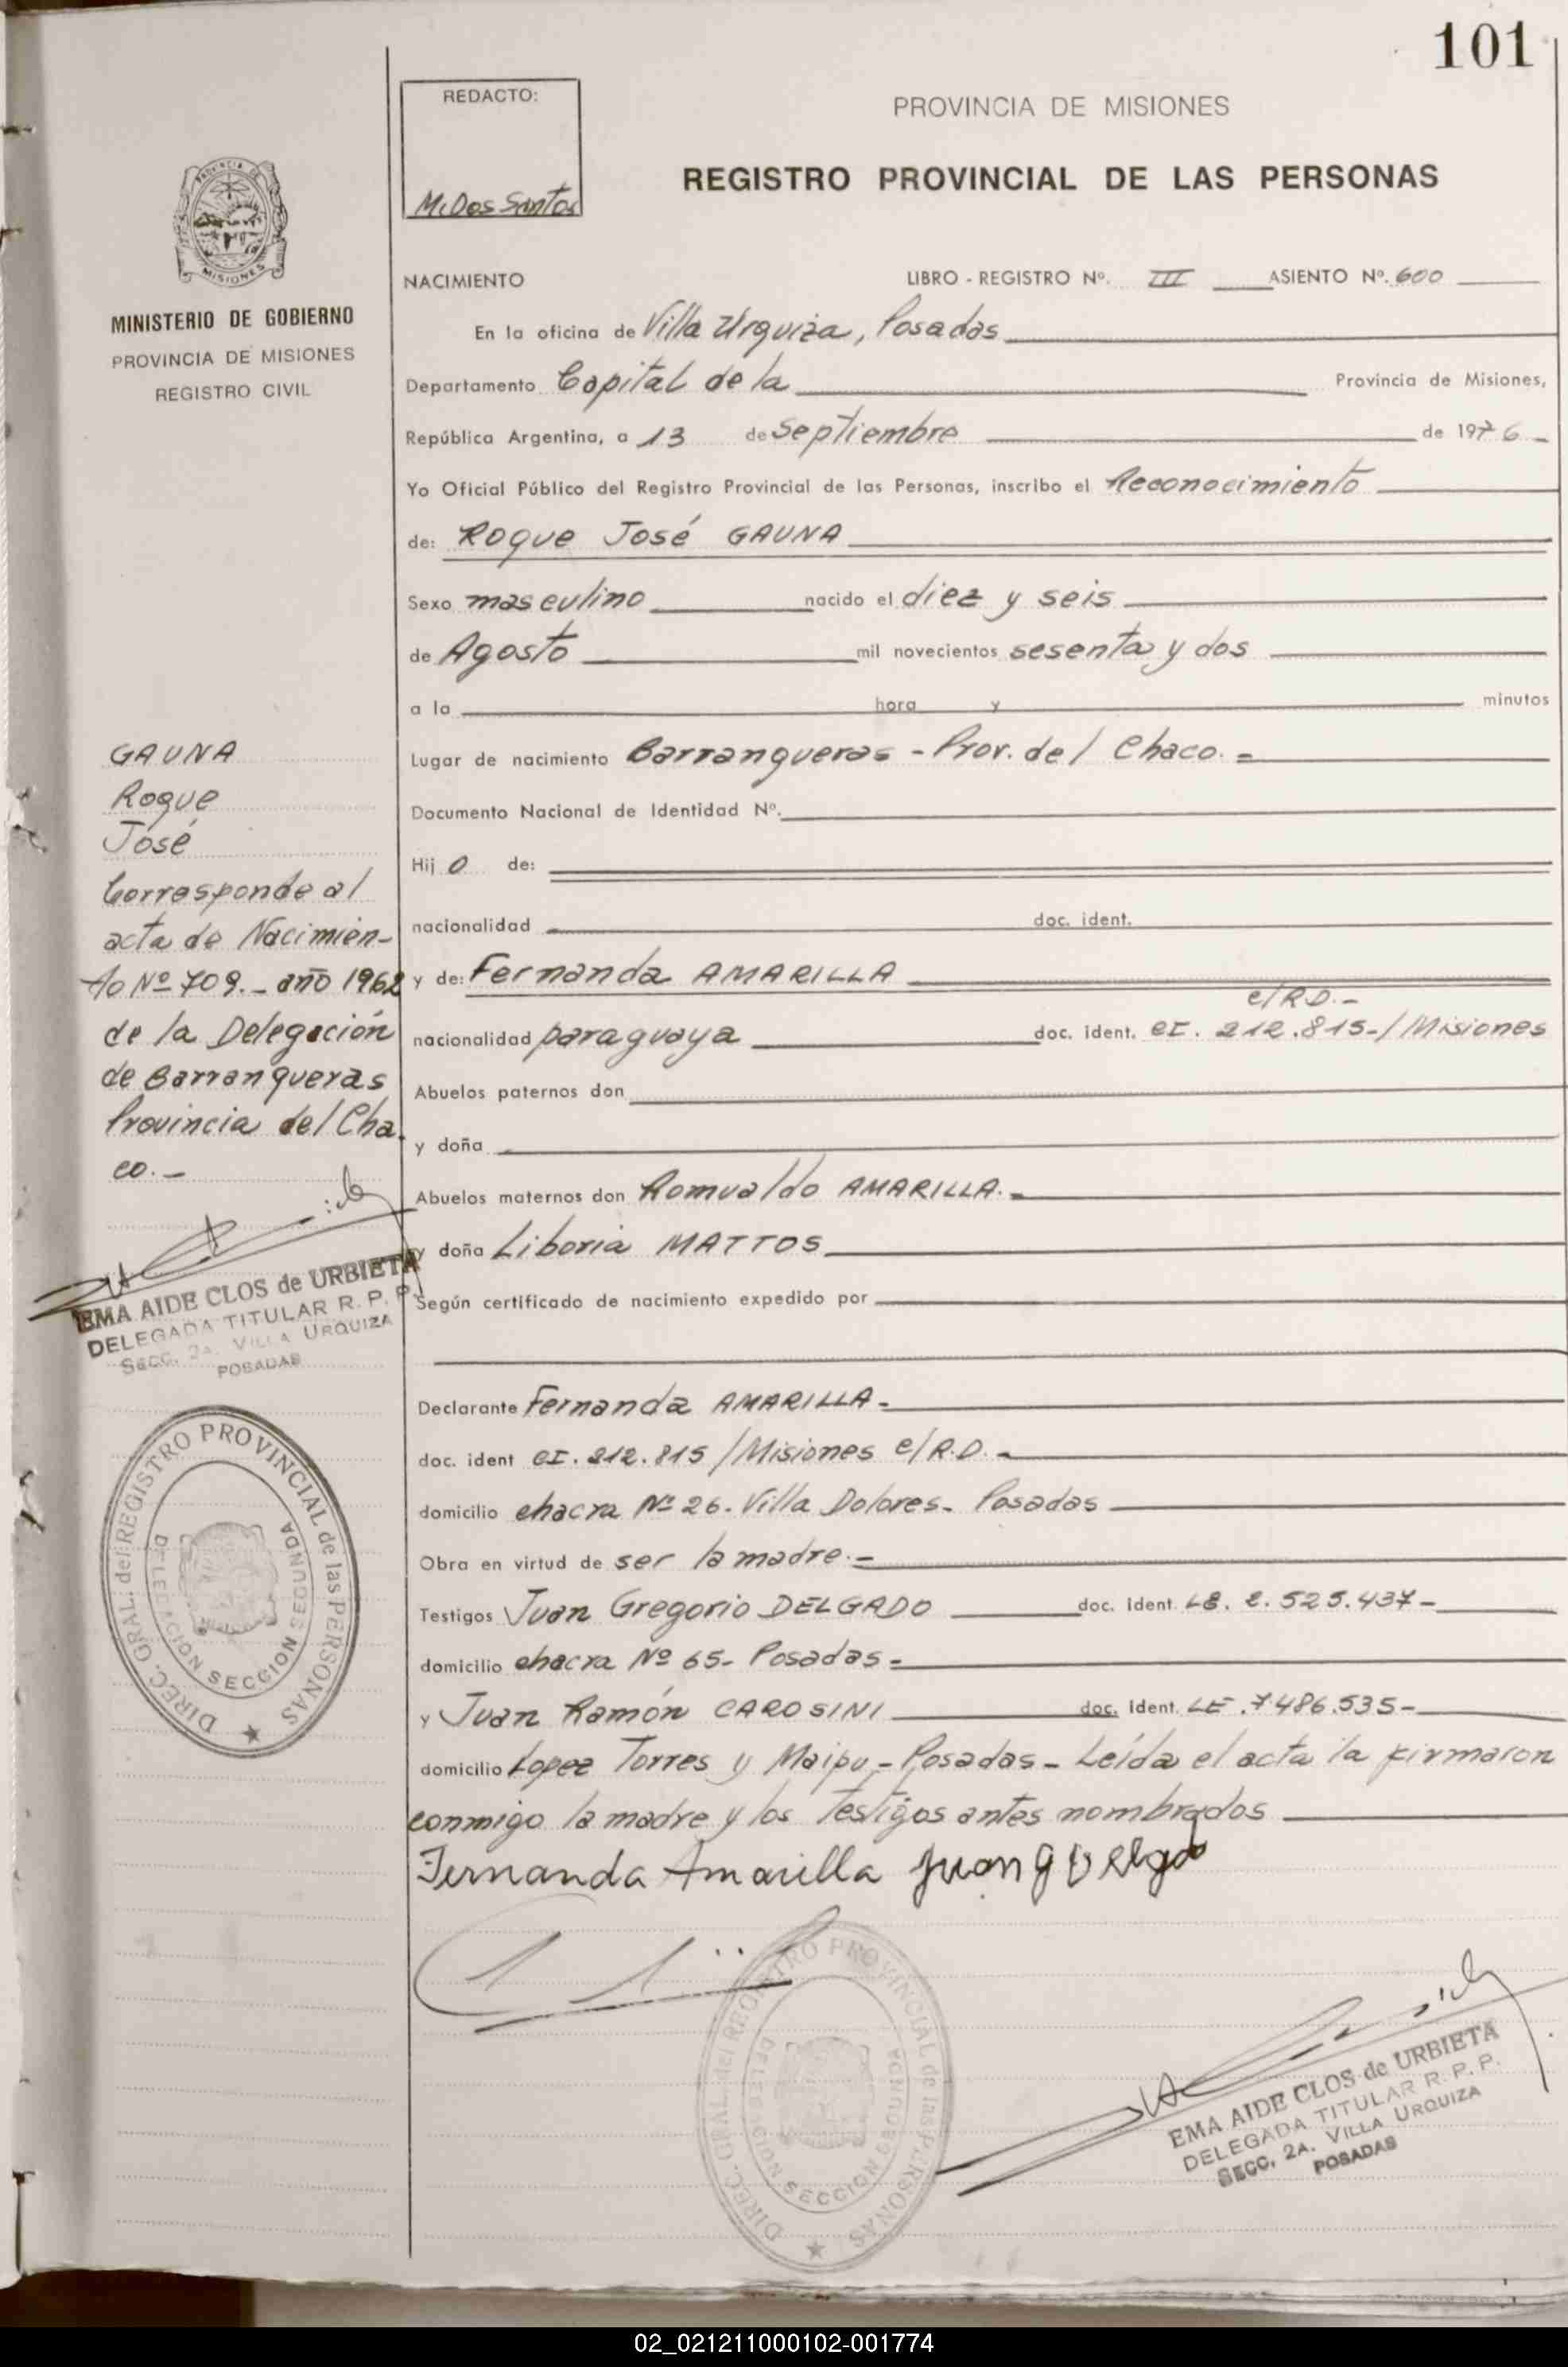 101
REDACTO:
M. Dos Santos
PROVINCIA DE MISIONES
REGISTRO PROVINCIAL DE LAS PERSONAS
PROVINCIA DE
MISIONES
MINISTERIO DE GOBIERNO
PROVINCIA DE MISIONES
REGISTRO CIVIL
NACIMIENTO LIBRO - REGISTRO Nº. III ASIENTO Nº. 600
En la oficina de Villa Urquiza, Posadas
Departamento Capital de la Provincia de Misiones,
República Argentina, a 13 de Septiembre de 1976
Yo Oficial Público del Registro Provincial de las Personas, inscribo el Reconocimiento
de: Roque José GAUNA
Sexo masculino nacido el diez y seis
de Agosto mil novecientos sesenta y dos
a la hora y minutos
Lugar de nacimiento Barranqueras - Prov. del Chaco. -
Documento Nacional de Identidad Nº.
Hij o de:
nacionalidad doc. ident.
y de: Fernanda AMARILLA
c/R.D.-
nacionalidad paraguaya doc. ident. CI. 212.815-/Misiones
Abuelos paternos don
y doña
Abuelos maternos don Romualdo AMARILLA.-
y doña Liboria MATTOS
Según certificado de nacimiento expedido por
Declarante Fernanda AMARILLA-
doc. ident CI. 212.815 /Misiones c/R.D.-
domicilio chacra Nº 26. Villa Dolores- Posadas
Obra en virtud de ser la madre.-
Testigos Juan Gregorio DELGADO doc. ident LE. 2.525.437-
domicilio chacra Nº 65- Posadas-
y Juan Ramón CAROSINI doc. Ident. LE. 7.486.535-
domicilio Lopez Torres y Maipu - Posadas - Leída el acta la firmaron
conmigo la madre y los testigos antes nombrados
Fernanda Amarilla Juan G Delgado
GAUNA
Roque
José
Corresponde al
acta de Nacimien-
to Nº 709.- año 1962
de la Delegación
de Barranqueras
Provincia del Cha
co.-
EMA AIDE CLOS de URBIETA
DELEGADA TITULAR R. P. P.
SECC. 2A. VILLA URQUIZA
POSADAS
DIREC. GRAL. del REGISTRO PROVINCIAL de las PERSONAS
DELEGACION SECCION SEGUNDA
DIREC. GRAL. del REGISTRO PROVINCIAL de las PERSONAS
DELEGACION SECCION SEGUNDA
EMA AIDE CLOS de URBIETA
DELEGADA TITULAR R. P. P.
SECC. 2A. VILLA URQUIZA
POSADAS
02_021211000102-001774